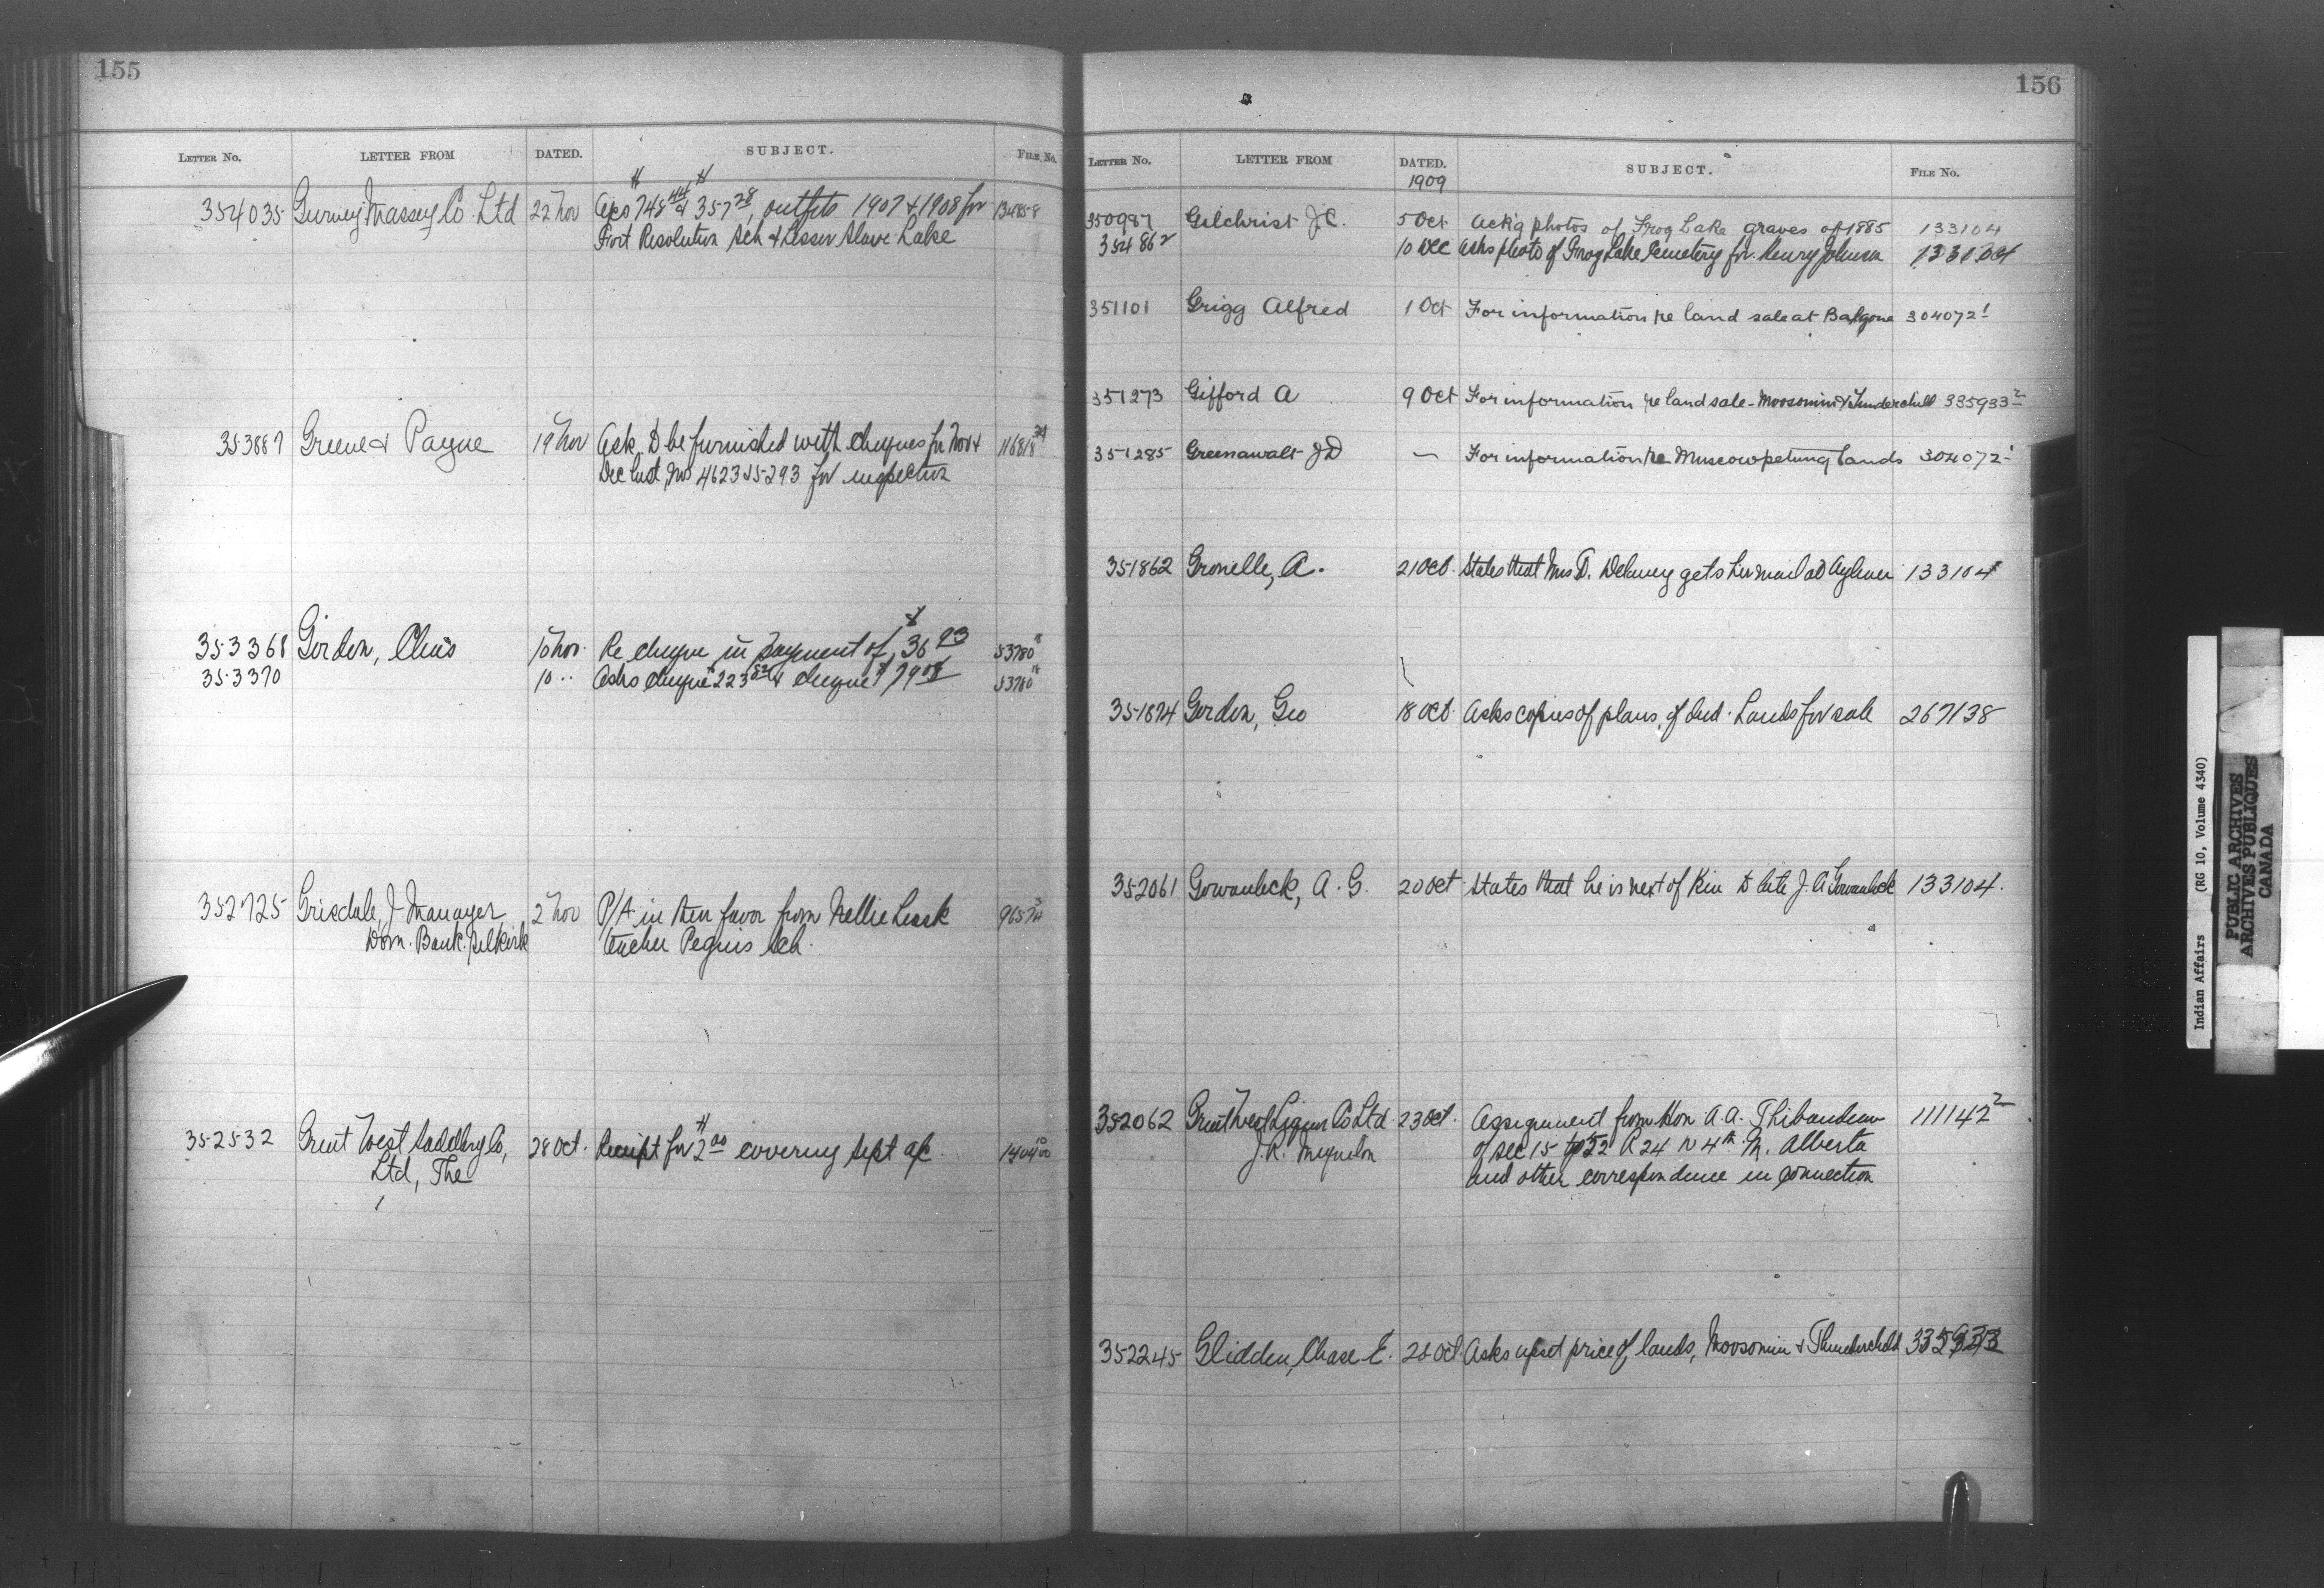 155
LETTER No. LETTER FROM DATED. SUBJECT. FILE No.
354035 Gurney Massey Co Ltd 22 Nov A/cs 748 44 & 357 28, outfits 1907 & 1908 for
Fort Resolution Sch & Lesser Slave Lake
353887 Greene & Payne 19 Nov Ask to be furnished with cheques for Nov &
Dec last, Nos 4623 & 5293 for inspection
353368 Gordon, Chas 10 Nov. Re cheque in payment of $36 93 53780
353370 10 " Asks cheque 223 52 & cheque $79 53780
352725 Grisdale, J. Manager 2 Nov P/A in their favor from Nellie Leask
Dom. Bank. Selkirk teacher Peguis Sch.
352532 Great West Saddlery Co, 28 Oct. Receipt for $2 00 covering Sept a/c
Ltd, The
156
LETTER No. LETTER FROM DATED. SUBJECT. FILE No.
1909
350987 Gilchrist J.C. 5 Oct Ack'g photos of Frog Lake graves of 1885 133104
354862 10 Dec Asks photo of Frog Lake Cemetery for Henry Johnson 133104
351101 Grigg Alfred 1 Oct For information re land sale at Balgonie 304072 1
351273 Gifford A 9 Oct For information re land sale - Moosomin & Thunderchild 335933 2
351285 Greenawalt J D — For information re Muscowpetung Lands 304072 1
351862 Gronelle, A. 21 Oct. States that Mrs T. Delaney gets her mail at Aylmer 133104
351874 Gordon, Geo 18 Oct. Asks copies of plans, of Ind. Lands for sale 267138
352061 Gowanlock, A. G. 20 Oct. States that he is next of Kin to late J. A Gowanlock 133104.
352062 Great West Liquor Co Ltd 23 Oct. Assignment from Hon A.A. Thibaudeau 111142 2
J.R. Miquelon of Sec 15 tp 22 R 24 W 4th M. Alberta
and other correspondence in connection
352245 Glidden, Chase E. 26 Oct. Asks upset price of lands, Moosomin & Thunderchild 335933
Indian Affairs (RG 10, Volume 4340)
PUBLIC ARCHIVES
ARCHIVES PUBLIQUES
CANADA